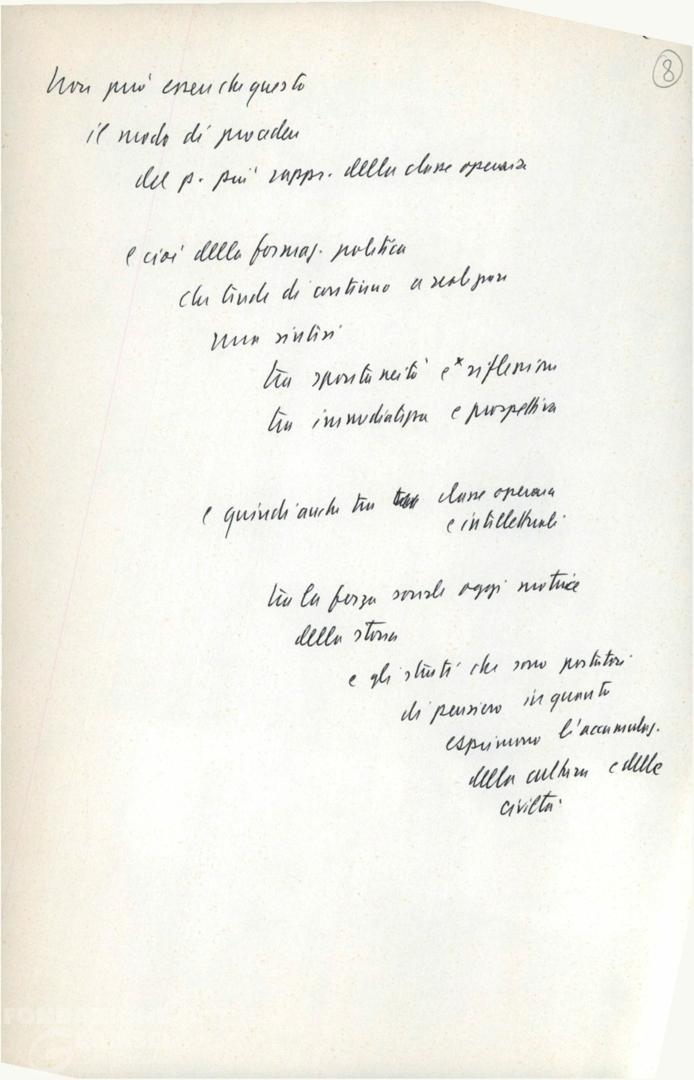 8
Non può essere che questo
il modo di procedere
del p. più rappr. della classe operaia
e cioè della formaz. politica
che tende di continuo a realizzare
una sintesi
tra spontaneità e x riflessione
tra immediatezza e prospettiva
e quindi anche tra classe operaia
e intellettuali
tra la forza sociale oggi motrice
della storia
e gli strati che sono portatori
di pensiero in quanto
esprimono l'accumulaz.
della cultura e della
civiltà.
FONDAZIONE